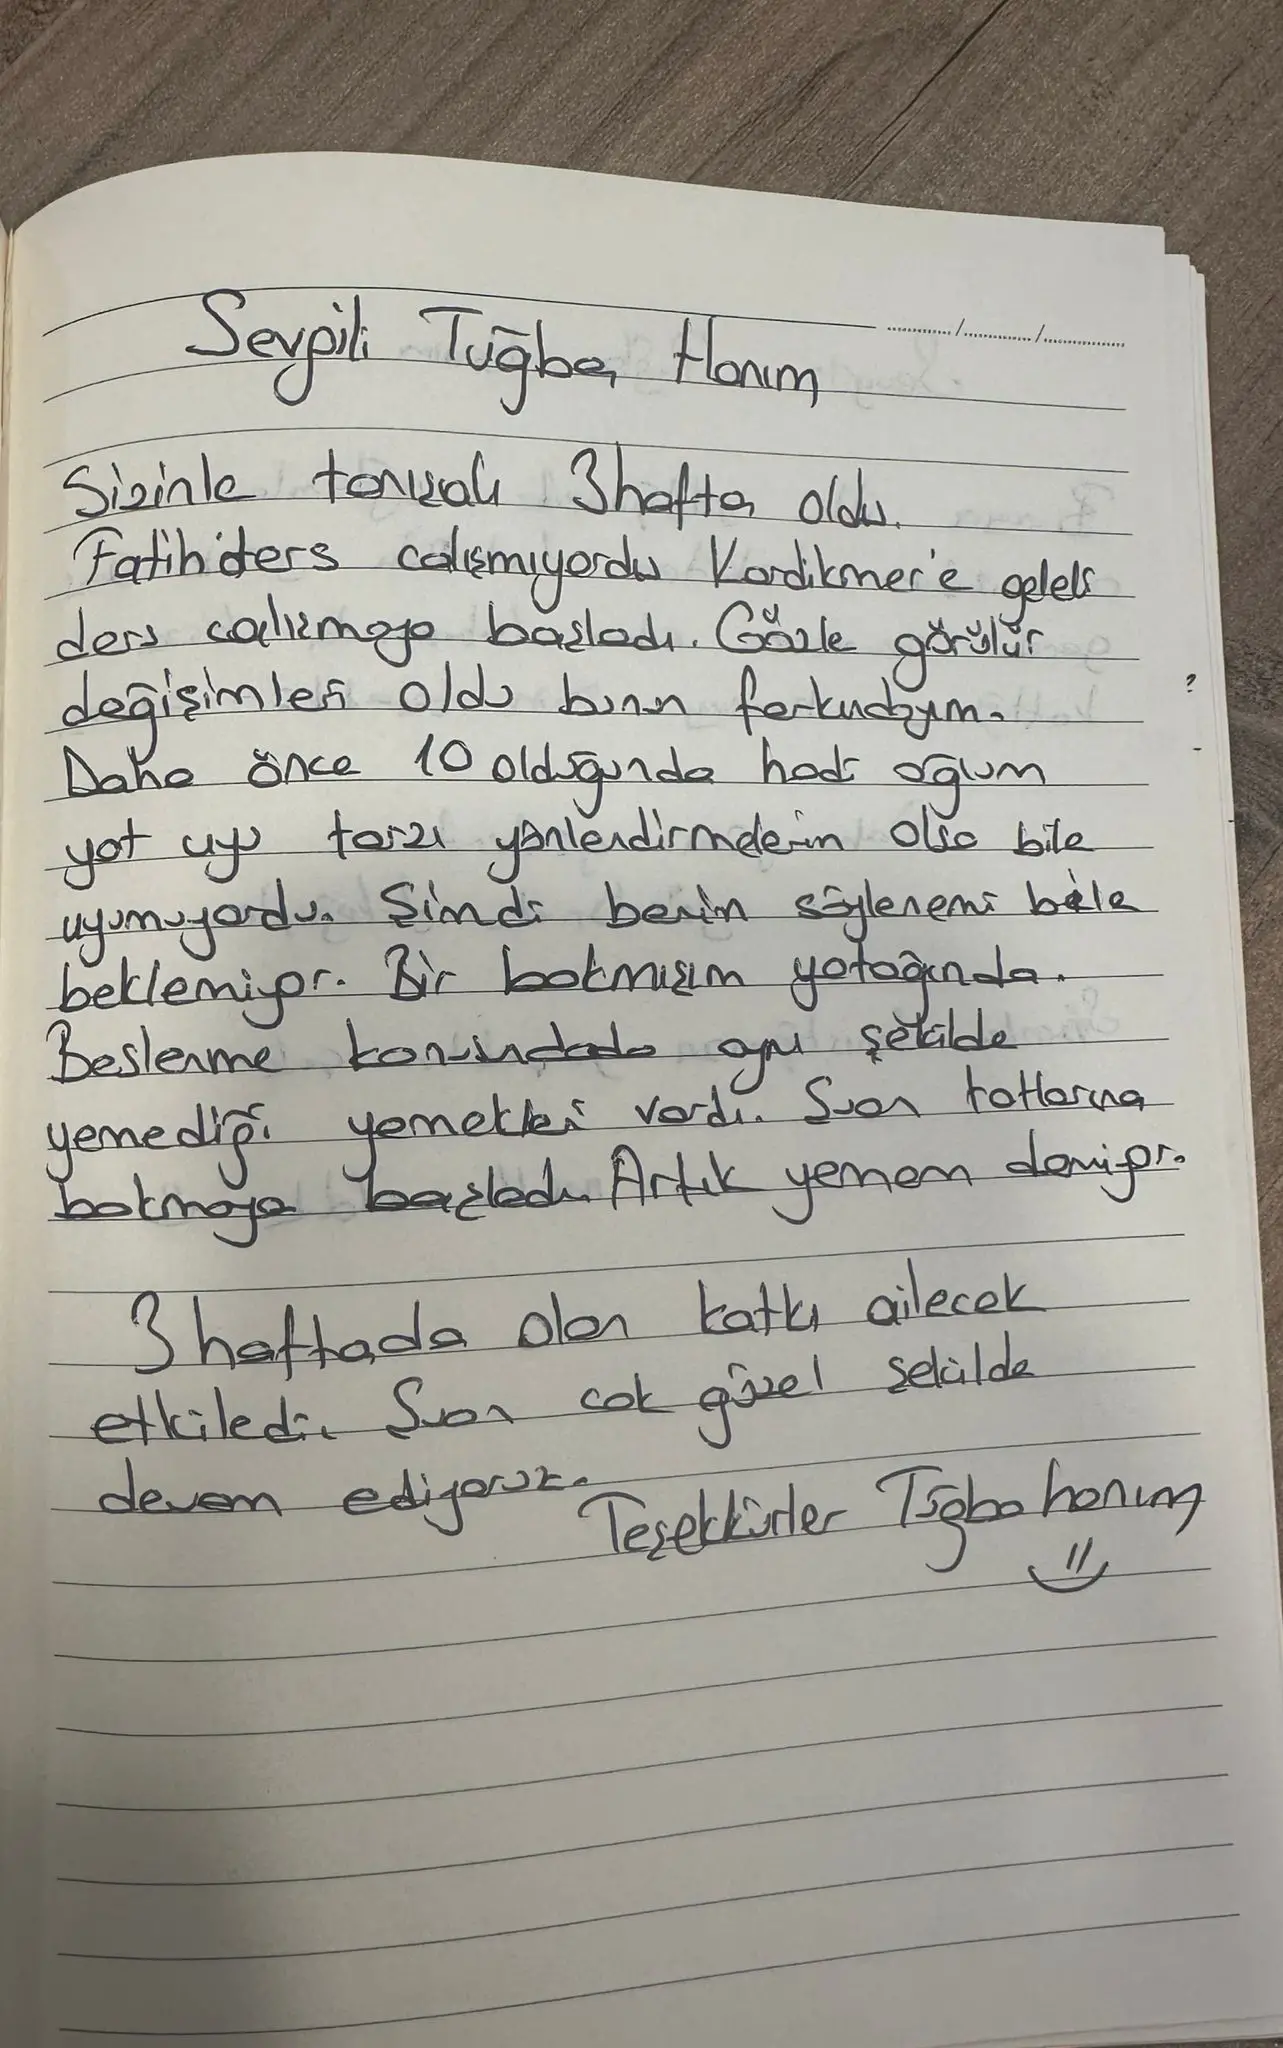 Sevgili Tuğba Hanım
Sizinle tanışalı 3 hafta oldu.
Fatih ders calışmıyordu Kardikmer'e geleli
ders calışmaya başladı. Gözle görülür
değişimleri oldu bunun farkındayım.
Daha önce 10 olduğunda hadi oğlum
yat uyu tarzı yönlendirmelerim olsa bile
uyumuyordu. Şimdi benim söylenemi bile
beklemiyor. Bir bakmışım yatağında.
Beslenme konusundada aynı şekilde
yemediği yemekleri vardı. Şuan tatlarına
bakmaya başladı. Artık yemem demiyor.
3 haftada olan katkı ailecek
etkiledi. Şuan cok güzel şekilde
devam ediyoruz.
Teşekkürler Tuğba hanım